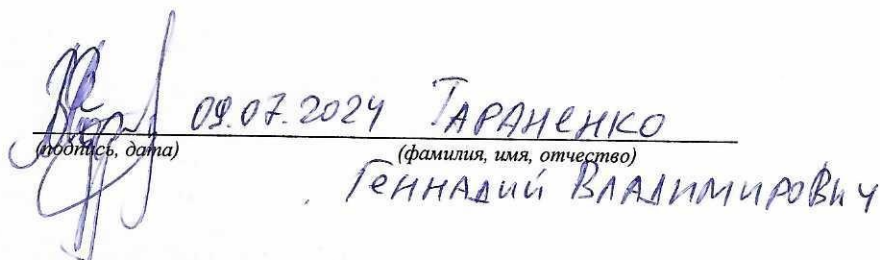 09.07.2024 ТАРАНЕНКО
(подпись, дата) (фамилия, имя, отчество)
ГЕННАДИЙ ВЛАДИМИРОВИЧ